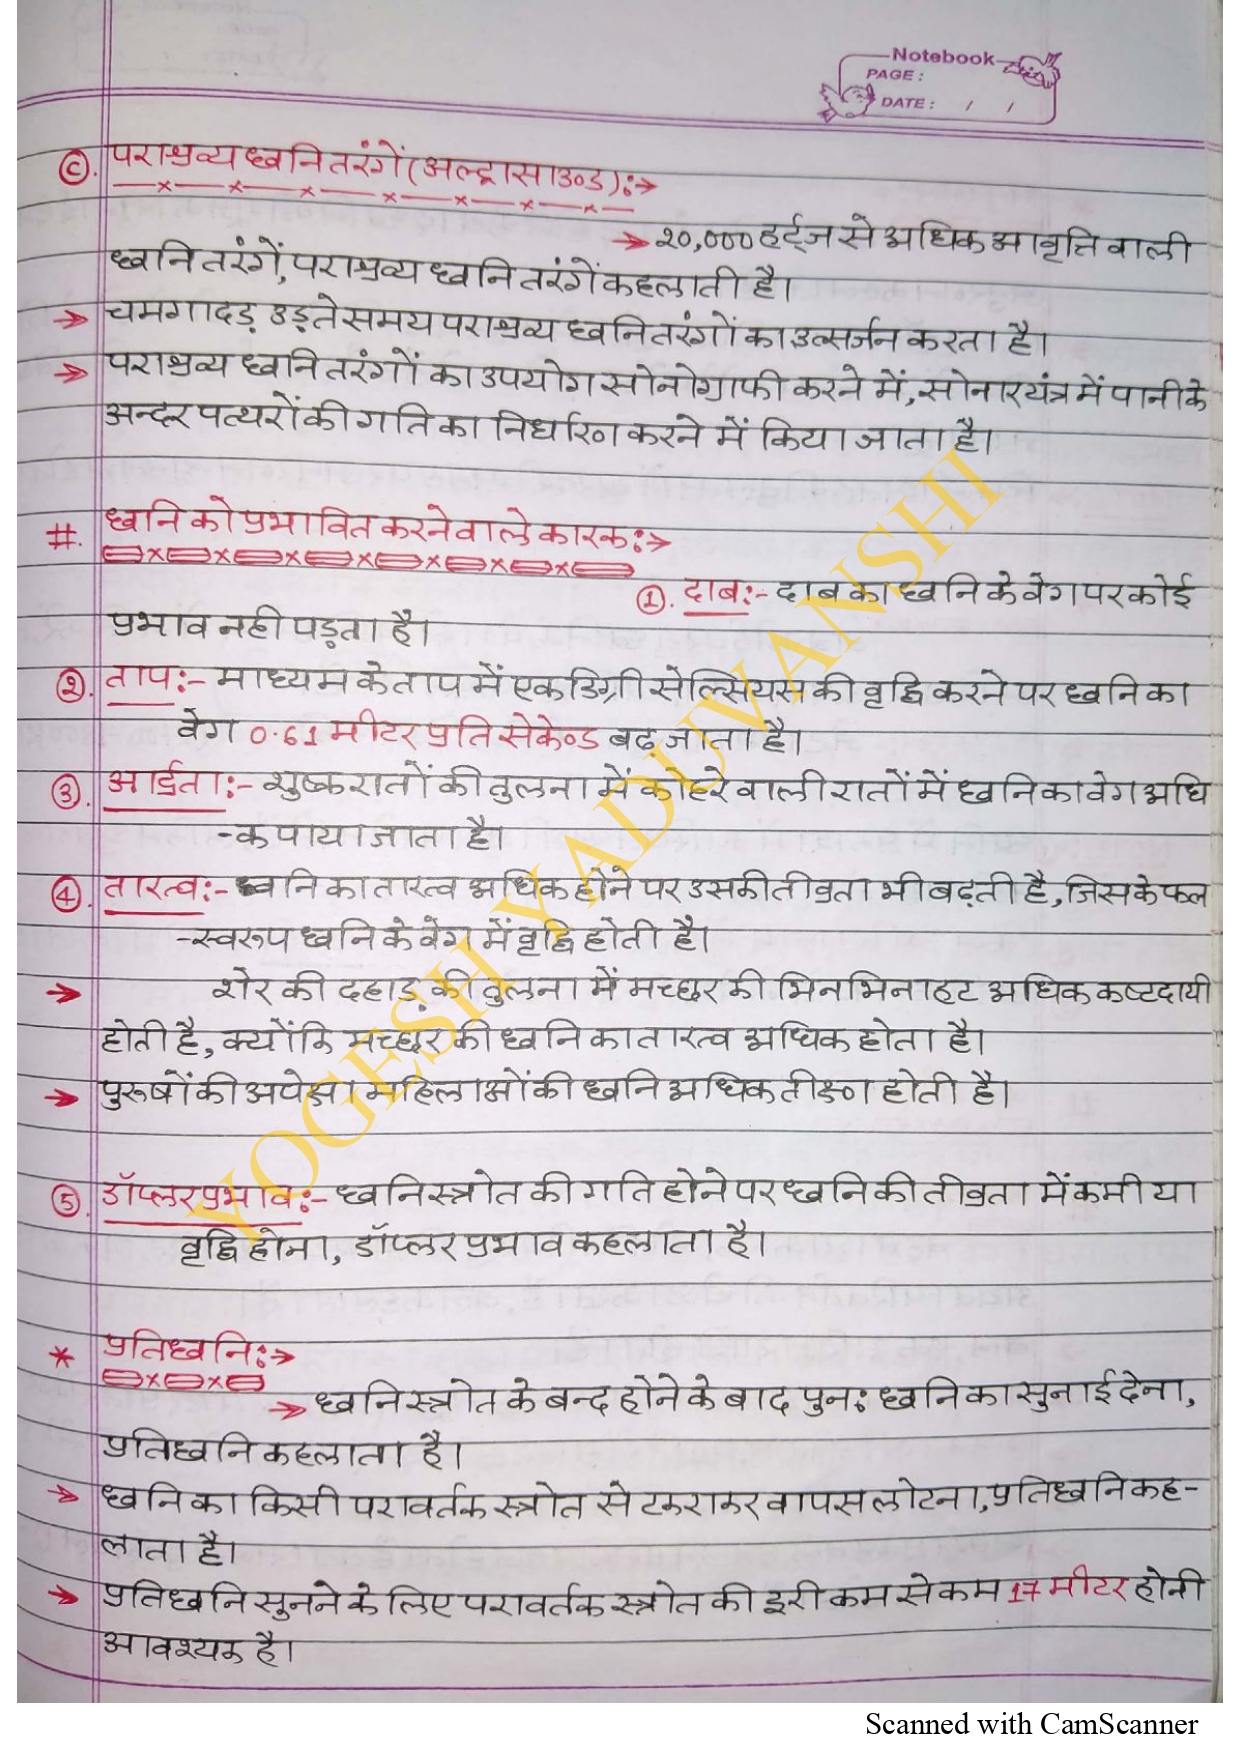 Notebook
PAGE :
DATE : / /
ⓒ. पराश्रव्य ध्वनि तरंगें (अल्ट्रासाउण्ड) :→
→ 20,000 हर्ट्ज से अधिक आवृत्ति वाली
ध्वनि तरंगें, पराश्रव्य ध्वनि तरंगें कहलाती है।
→ चमगादड़ उड़ते समय पराश्रव्य ध्वनि तरंगों का उत्सर्जन करता है।
→ पराश्रव्य ध्वनि तरंगों का उपयोग सोनोग्राफी करने में, सोनार यंत्र में पानी के
अन्दर पत्थरों की गति का निर्धारण करने में किया जाता है।
#. ध्वनि को प्रभावित करने वाले कारक :→
①. दाब :- दाब का ध्वनि के वेग पर कोई
प्रभाव नही पड़ता है।
②. ताप :- माध्यम के ताप में एक डिग्री सेल्सियस की वृद्धि करने पर ध्वनि का
वेग 0.61 मीटर प्रति सेकेण्ड बढ़ जाता है।
③. आर्द्रता :- शुष्क रातों की तुलना में कोहरे वाली रातों में ध्वनि का वेग अधि
-क पाया जाता है।
④. तारत्व :- ध्वनि का तारत्व अधिक होने पर उसकी तीव्रता भी बढ़ती है, जिसके फल
-स्वरूप ध्वनि के वेग में वृद्धि होती है।
→ शेर की दहाड़ की तुलना में मच्छर की भिनभिनाहट अधिक कष्टदायी
होती है, क्योंकि मच्छर की ध्वनि का तारत्व अधिक होता है।
→ पुरूषों की अपेक्षा महिलाओं की ध्वनि अधिक तीक्ष्ण होती है।
⑤. डॉप्लर प्रभाव :- ध्वनि स्त्रोत की गति होने पर ध्वनि की तीव्रता में कमी या
वृद्धि होना, डॉप्लर प्रभाव कहलाता है।
* प्रतिध्वनि :→
→ ध्वनि स्त्रोत के बन्द होने के बाद पुन: ध्वनि का सुनाई देना,
प्रतिध्वनि कहलाता है।
→ ध्वनि का किसी परावर्तक स्त्रोत से टकराकर वापस लोटना, प्रतिध्वनि कह-
लाता है।
→ प्रतिध्वनि सुनने के लिए परावर्तक स्त्रोत की दूरी कम से कम 17 मीटर होनी
आवश्यक है।
YOGESH YADUVANSHI
Scanned with CamScanner